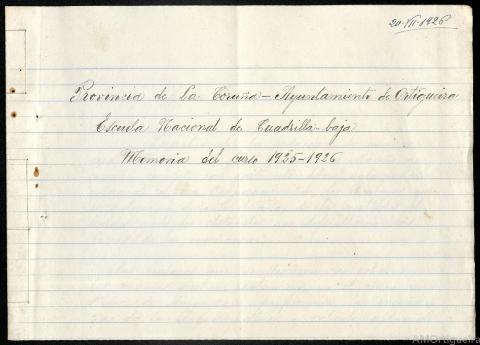 20-VII-1926
Provincia de La Coruña - Ayuntamiento de Ortigueira
Escuela Nacional de Cuadrilla-baja
Memoria del curso 1925-1926
AMOrtigueira